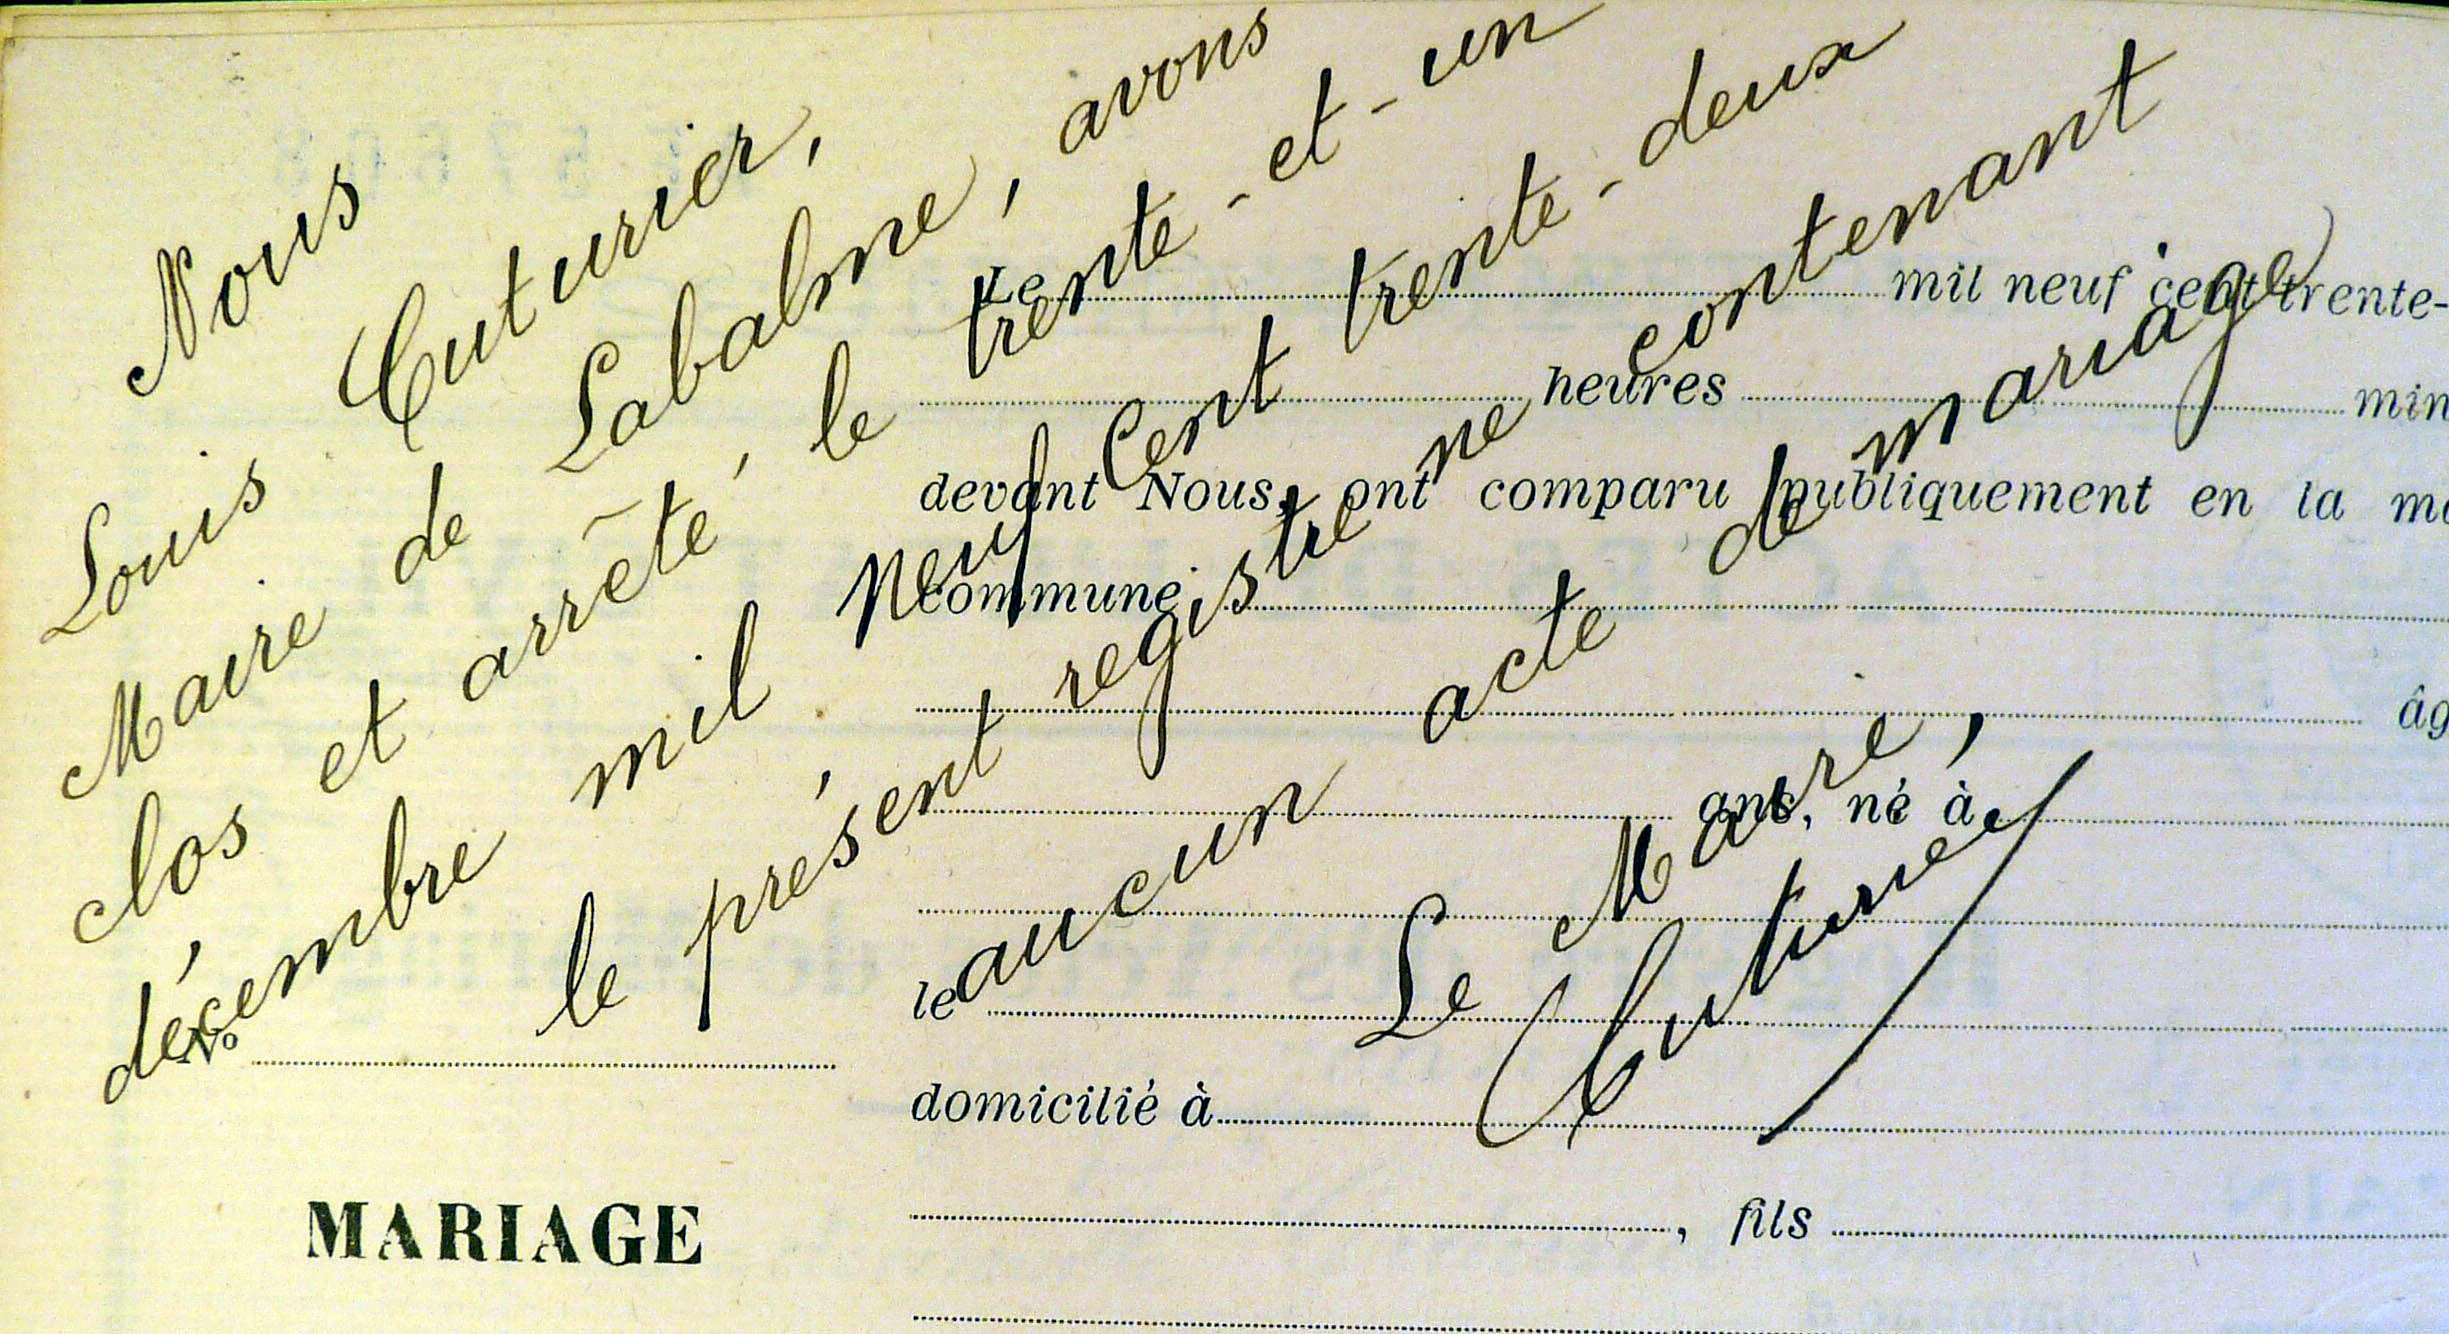 Nous
Louis Cuturier,
Maire de Labalme, avons
clos et arrêté, le trente-et-un
décembre mil neuf Cent trente-deux
le présent registre ne contenant
aucun acte de mariage
Le Maire,
Cuturier
Le mil neuf cent trente-
heures min
devant Nous, ont comparu publiquement en la ma
commune
âg
ans, né à
le
No
domicilié à
MARIAGE
, fils